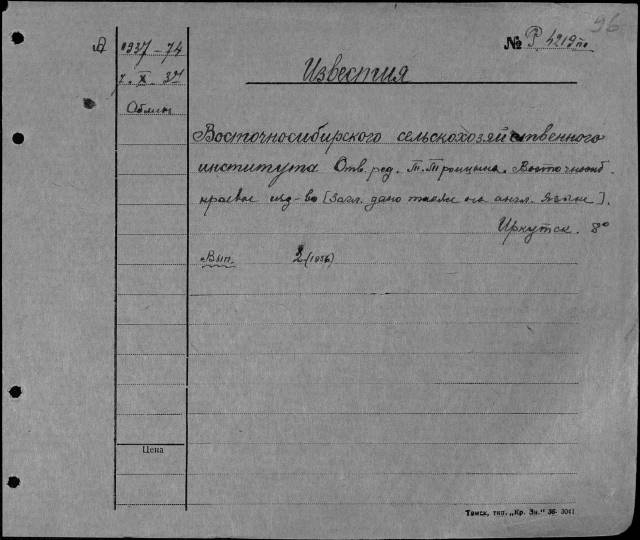 96
А 1937-74
№ Р. 4219 по
7. X. 37
Известия
Обмен
Восточносибирского сельскохозяйственного
института Отв. ред. Т. Троицына. Восточносиб.
краевое изд-во [Загл. дано также на англ. языке].
Иркутск. 8°
Вып. 2 (1936)
Цена
Томск, тип. „Кр. Зн." 36- 3041